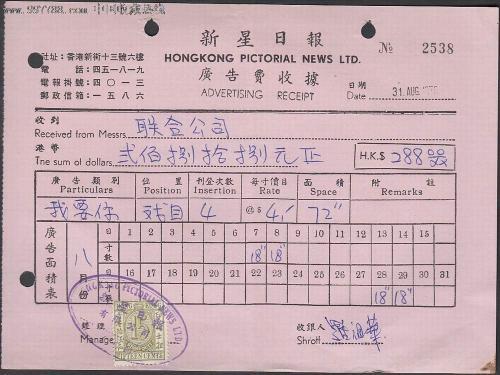 www.997788.com 中国收藏热线
新星日報
HONGKONG PICTORIAL NEWS LTD.
廣告費收據
ADVERTISING RECEIPT
社址：香港新街十三號六樓
電話：四五一八一九
電報掛號：四〇一三
郵政信箱：一五八六
№ 2538
日期
Date 31 AUG
收到
Received from Messrs 联合公司
港幣
The sum of dollars 弍佰捌拾捌元正
H.K.$ 288.00
廣告類別 位置 刊登次數 每寸價目 面積 附註
Particulars Position Insertion Rate Space Remarks
我要你 戏目 4 @$ 4/- 72"
廣告面積表 八月份
日 1 2 3 4 5 6 7 8 9 10 11 12 13 14 15
寸數 18" 18"
日 16 17 18 19 20 21 22 23 24 25 26 27 28 29 30 31
寸數 18" 18"
HONGKONG PICTORIAL NEWS LTD.
FIFTEEN CENTS
經理
Manager
收銀人
Shroff